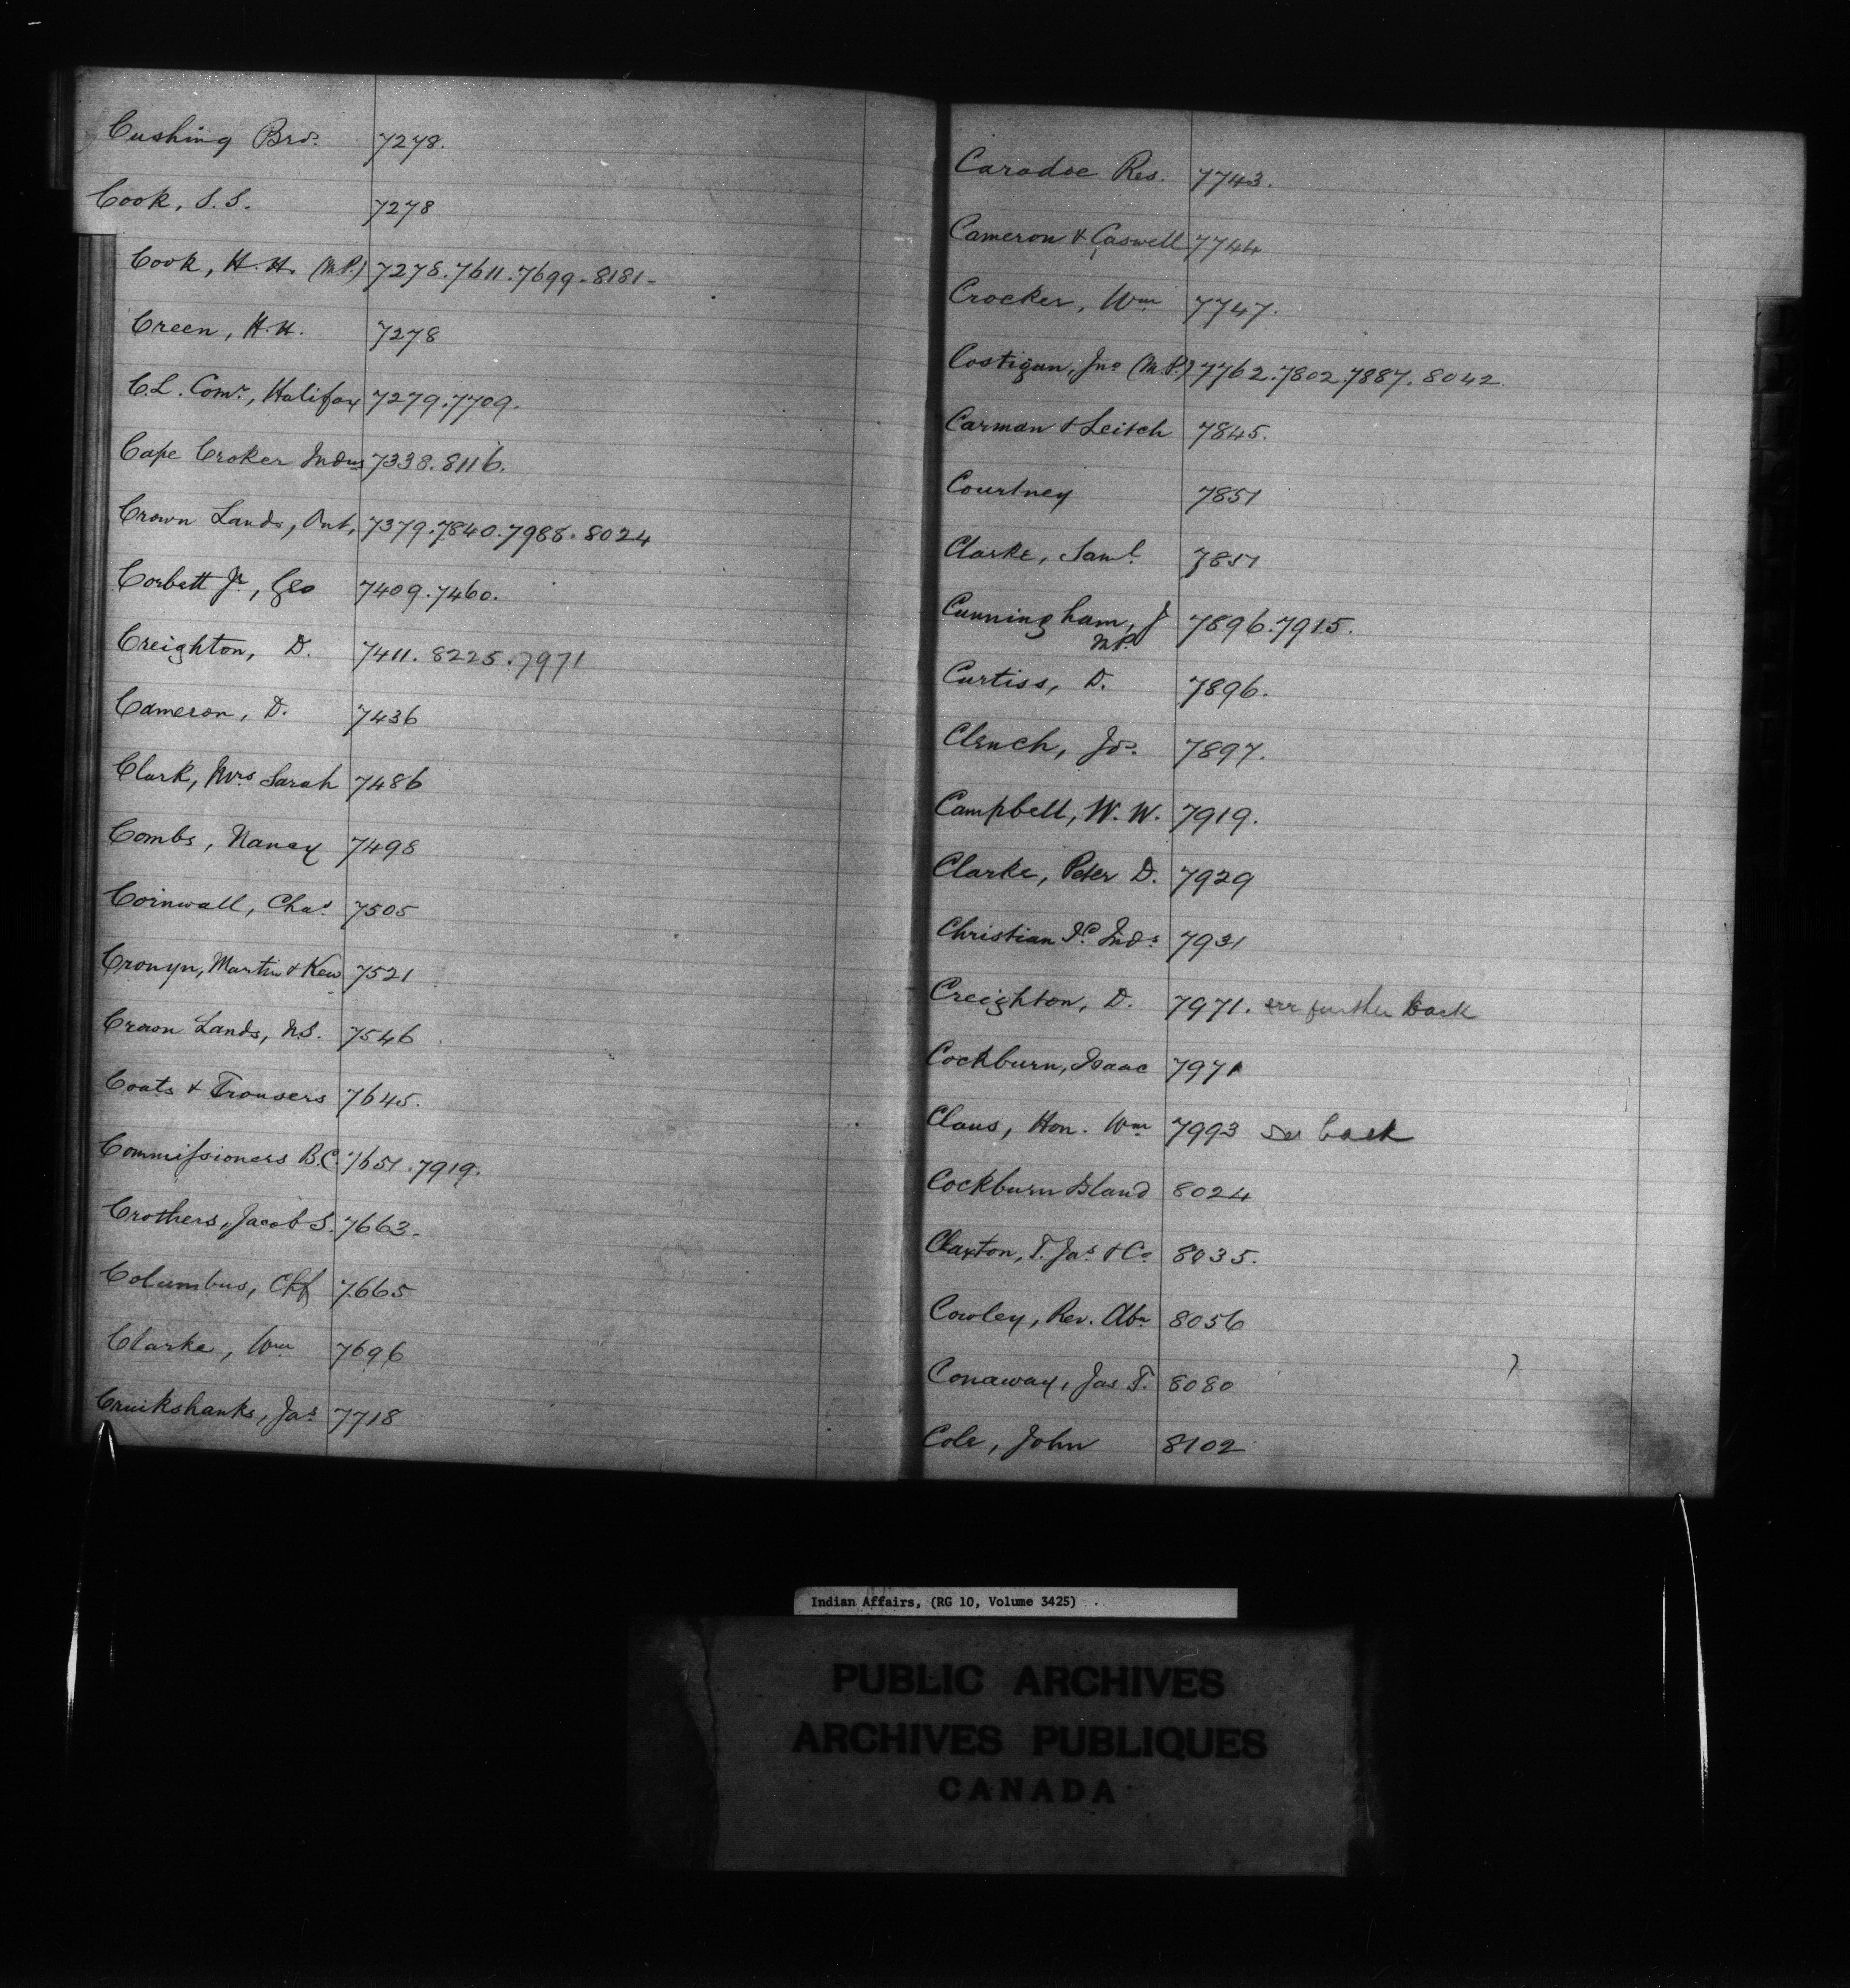 Cushing Bros. 7278.
Cook, S.S. 7278
Cook, H.H. (M.P.) 7278.7611.7699.8181-
Creen, H.H. 7278
C.L. Comr, Halifax 7279.7709.
Cape Croker Indns 7338.8116.
Crown Lands, Ont. 7379.7840.7988.8024
Corbett Jr, Geo 7409.7460.
Creighton, D. 7411.8225.7971
Cameron, D. 7436
Clark, Mrs Sarah 7486
Combs, Nancy 7498
Cornwall, Chas. 7505
Cronyn, Martin & Kew 7521
Crown Lands, N.S. 7546
Coats & Trousers 7645.
Commissioners B.C. 7651.7919.
Crothers, Jacob S. 7663.
Columbus, Chf 7665
Clarke, Wm 7696
Cruikshanks, Jas 7718
Caradoc Res. 7743.
Cameron & Caswell 7744
Crocker, Wm 7747.
Costigan, Jno (M.P.) 7762.7802.7887.8042.
Carman & Leitch 7845.
Courtney 7851
Clarke, Saml. 7851
Cunningham, J 7896.7915.
M.P.
Curtiss, D. 7896.
Clench, Jos. 7897.
Campbell, W.W. 7919.
Clarke, Peter D. 7929
Christian Id Inds 7931
Creighton, D. 7971. see further back
Cockburn, Isaac 7971
Claus, Hon. Wm 7993 see back
Cockburn Island 8024
Claxton, T. Jas & Co 8035.
Cowley, Rev. Abm 8056
Conaway, Jas T. 8080
Cole, John 8102
Indian Affairs, (RG 10, Volume 3425)
PUBLIC ARCHIVES
ARCHIVES PUBLIQUES
CANADA